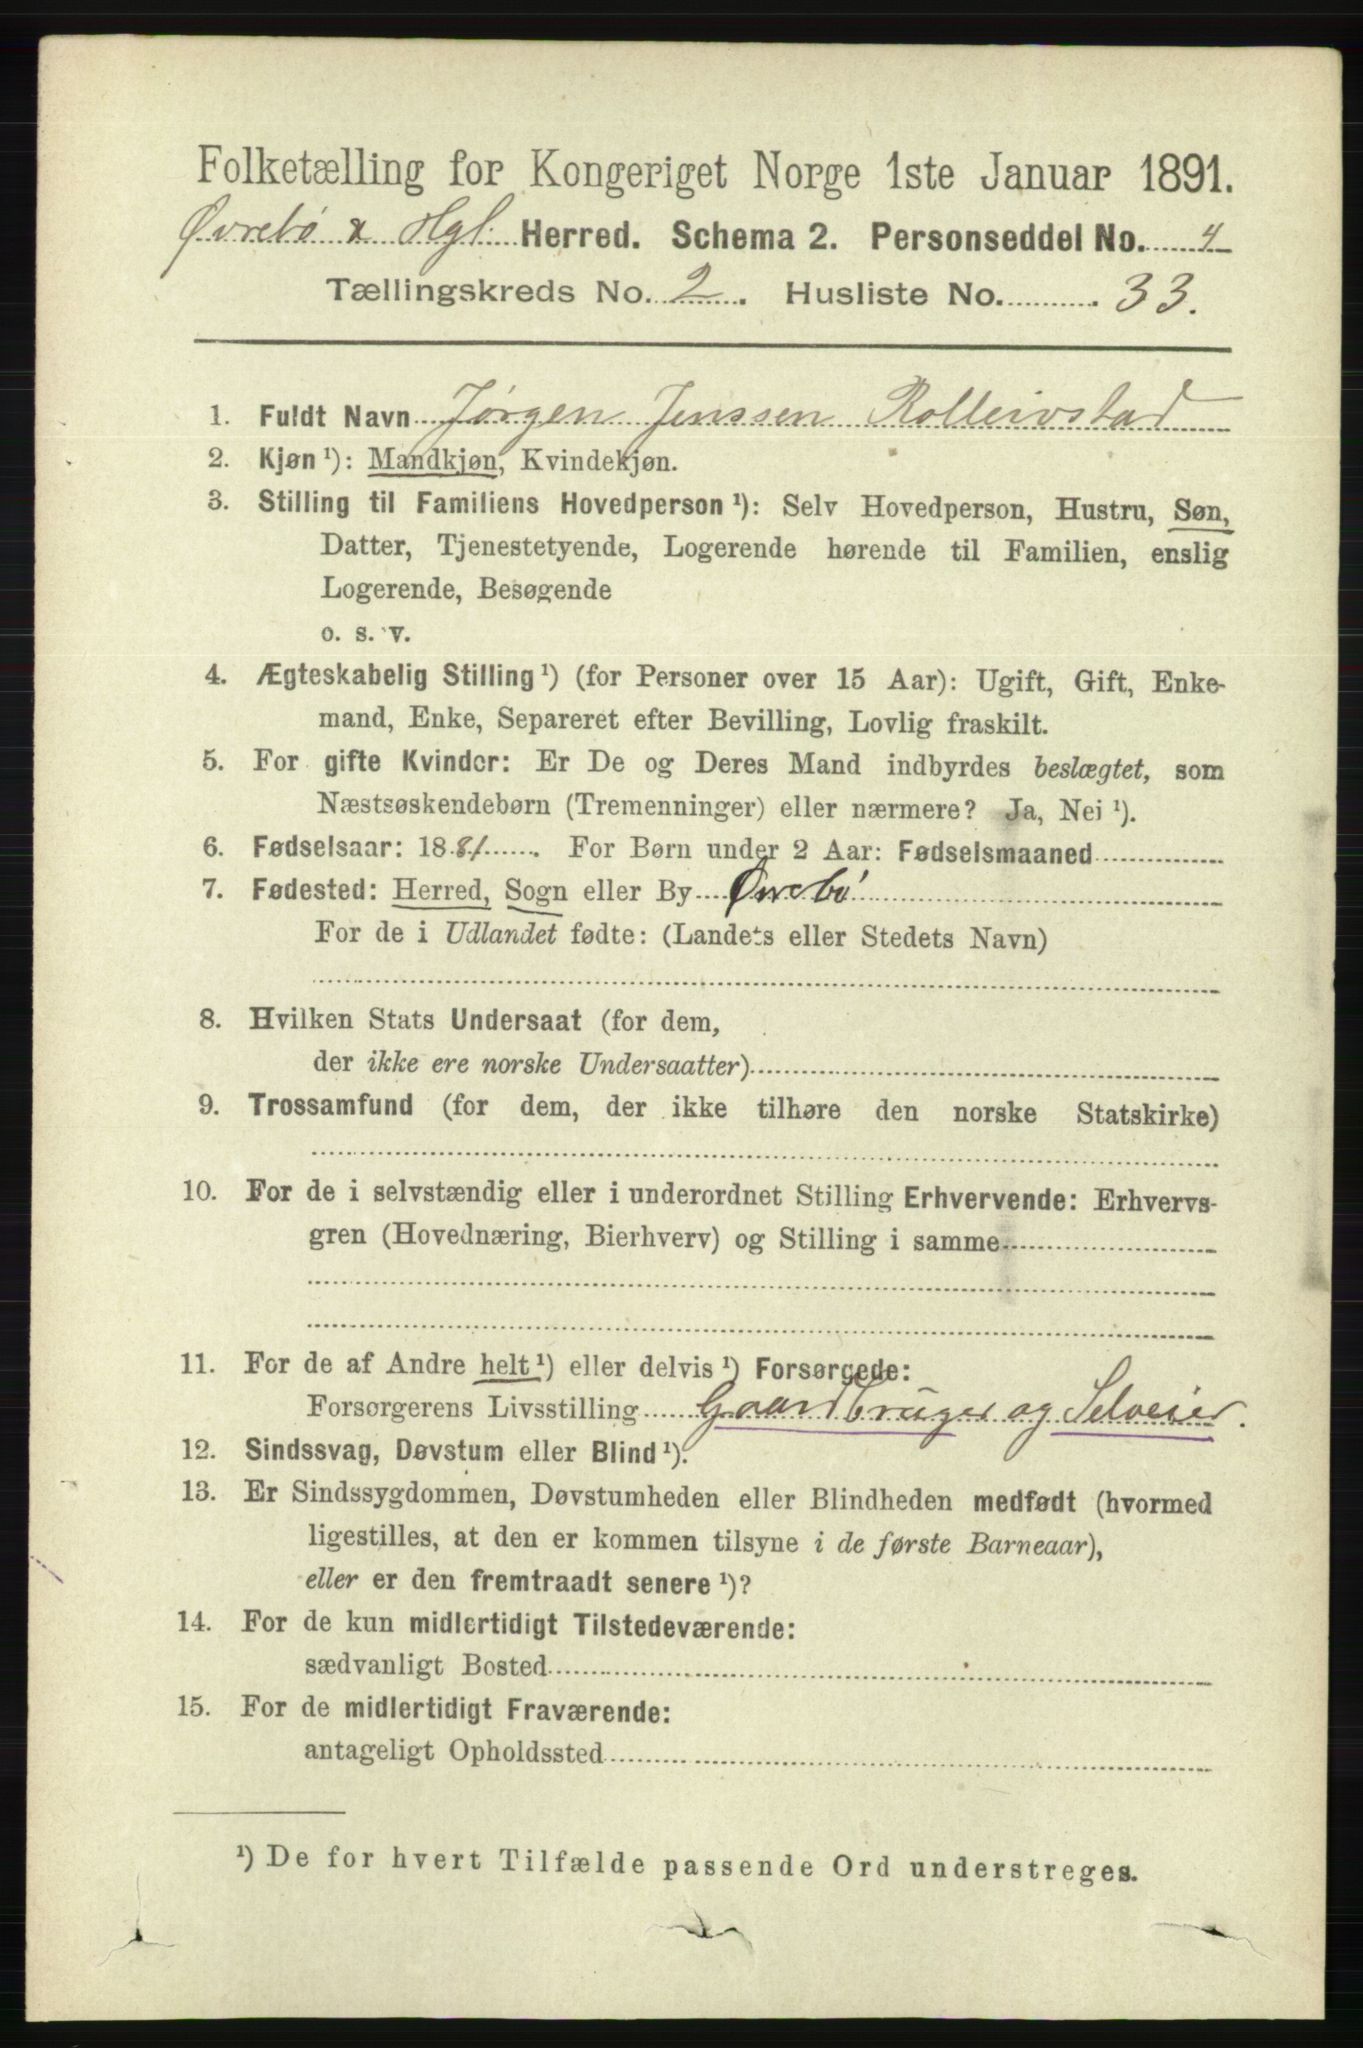 Folketælling for Kongeriget Norge 1ste Januar 1891.
Øvrebø & Hgl. Herred. Schema 2. Personseddel No. 4
Tællingskreds No. 2. Husliste No. 33.
1. Fuldt Navn Jørgen Jenssen Rolleivstad
2. Kjøn ¹): Mandkjøn, Kvindekjøn.
3. Stilling til Familiens Hovedperson ¹): Selv Hovedperson, Hustru, Søn,
Datter, Tjenestetyende, Logerende hørende til Familien, enslig
Logerende, Besøgende
o. s. v.
4. Ægteskabelig Stilling ¹) (for Personer over 15 Aar): Ugift, Gift, Enke-
mand, Enke, Separeret efter Bevilling, Lovlig fraskilt.
5. For gifte Kvinder: Er De og Deres Mand indbyrdes beslægtet, som
Næstsøskendebørn (Tremenninger) eller nærmere? Ja, Nei ¹).
6. Fødselsaar: 1881. For Børn under 2 Aar: Fødselsmaaned
7. Fødested: Herred, Sogn eller By Øvrebø
For de i Udlandet fødte: (Landets eller Stedets Navn)
8. Hvilken Stats Undersaat (for dem,
der ikke ere norske Undersaatter)
9. Trossamfund (for dem, der ikke tilhøre den norske Statskirke)
10. For de i selvstændig eller i underordnet Stilling Erhvervende: Erhvervs-
gren (Hovednæring, Bierhverv) og Stilling i samme
11. For de af Andre helt ¹) eller delvis ¹) Forsørgede:
Forsørgerens Livsstilling Gaardbruger og Selveier.
12. Sindssvag, Døvstum eller Blind ¹).
13. Er Sindssygdommen, Døvstumheden eller Blindheden medfødt (hvormed
ligestilles, at den er kommen tilsyne i de første Barneaar),
eller er den fremtraadt senere ¹)?
14. For de kun midlertidigt Tilstedeværende:
sædvanligt Bosted
15. For de midlertidigt Fraværende:
antageligt Opholdssted
¹) De for hvert Tilfælde passende Ord understreges.